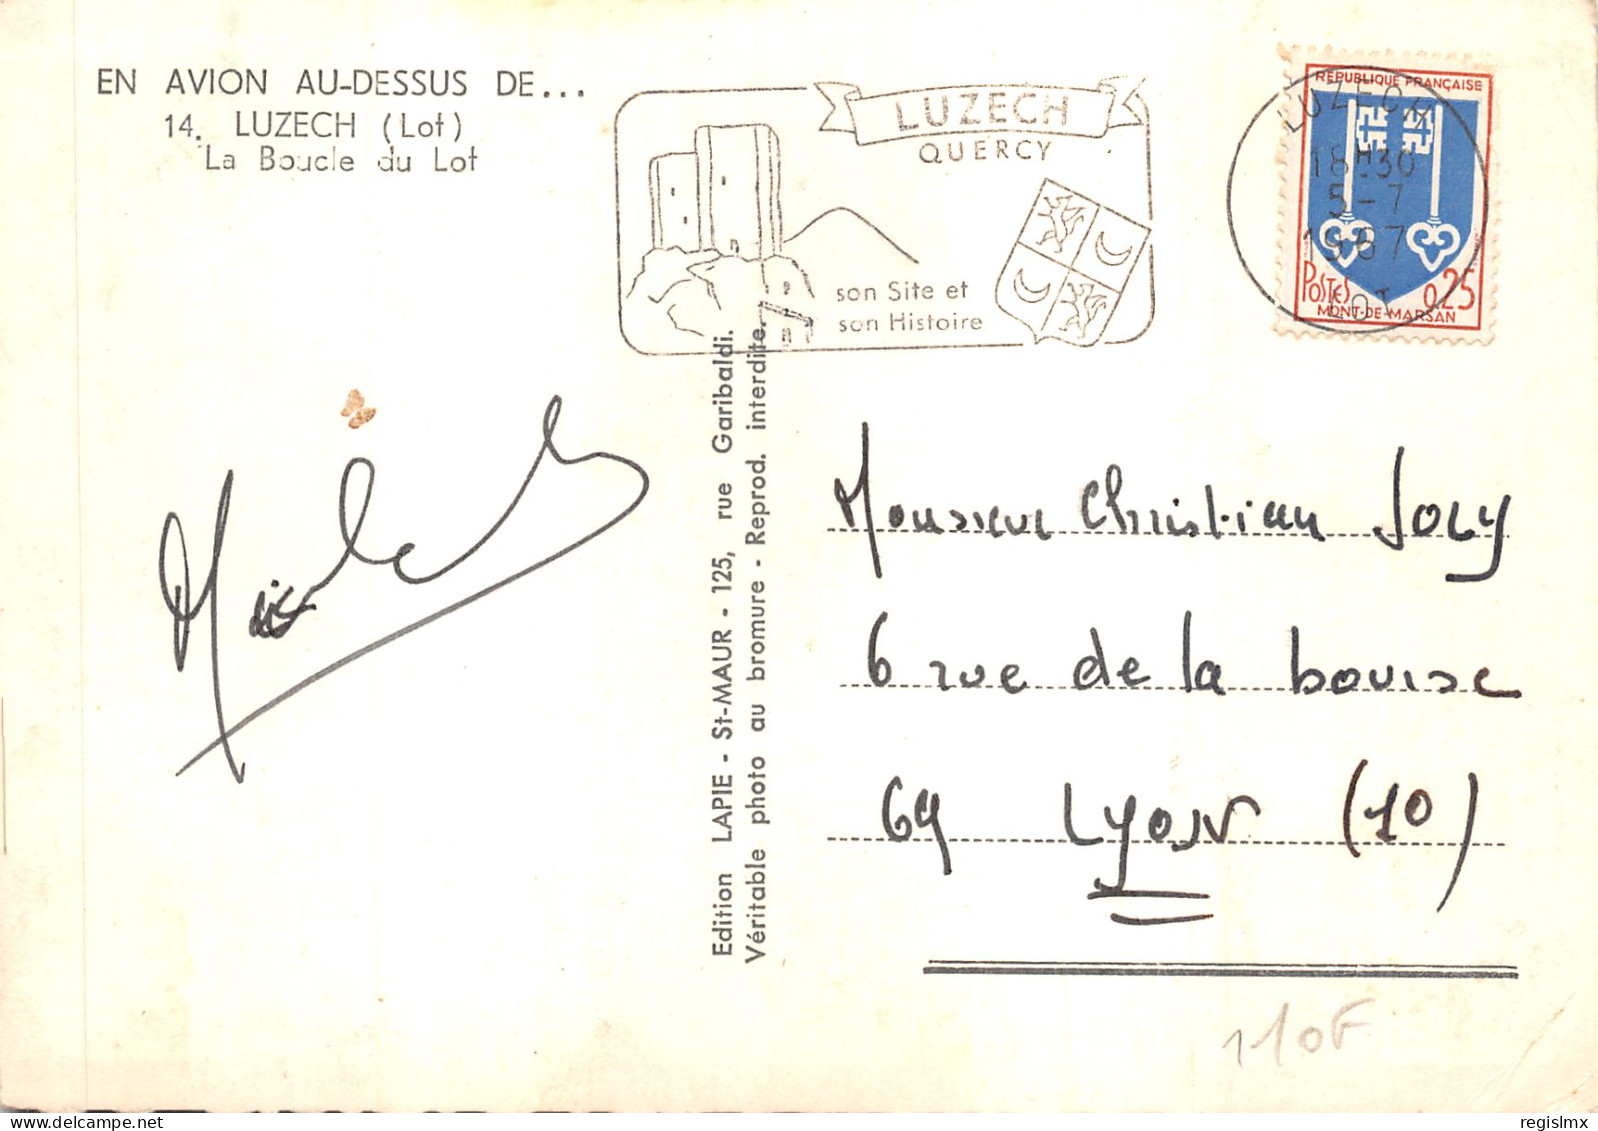 EN AVION AU-DESSUS DE...
14. LUZECH (Lot)
La Boucle du Lot
LUZECH
QUERCY
son Site et
son Histoire
RÉPUBLIQUE FRANÇAISE
POSTES 0,25
MONT-DE-MARSAN
LUZECH
18H30
5-7
1967
LOT
Edition LAPIE - St-MAUR - 125, rue Garibaldi.
Véritable photo au bromure - Reprod. interdite.
Monsieur Christian JOLY
6 rue de la bourse
69 Lyon (10)
110F
regislmx